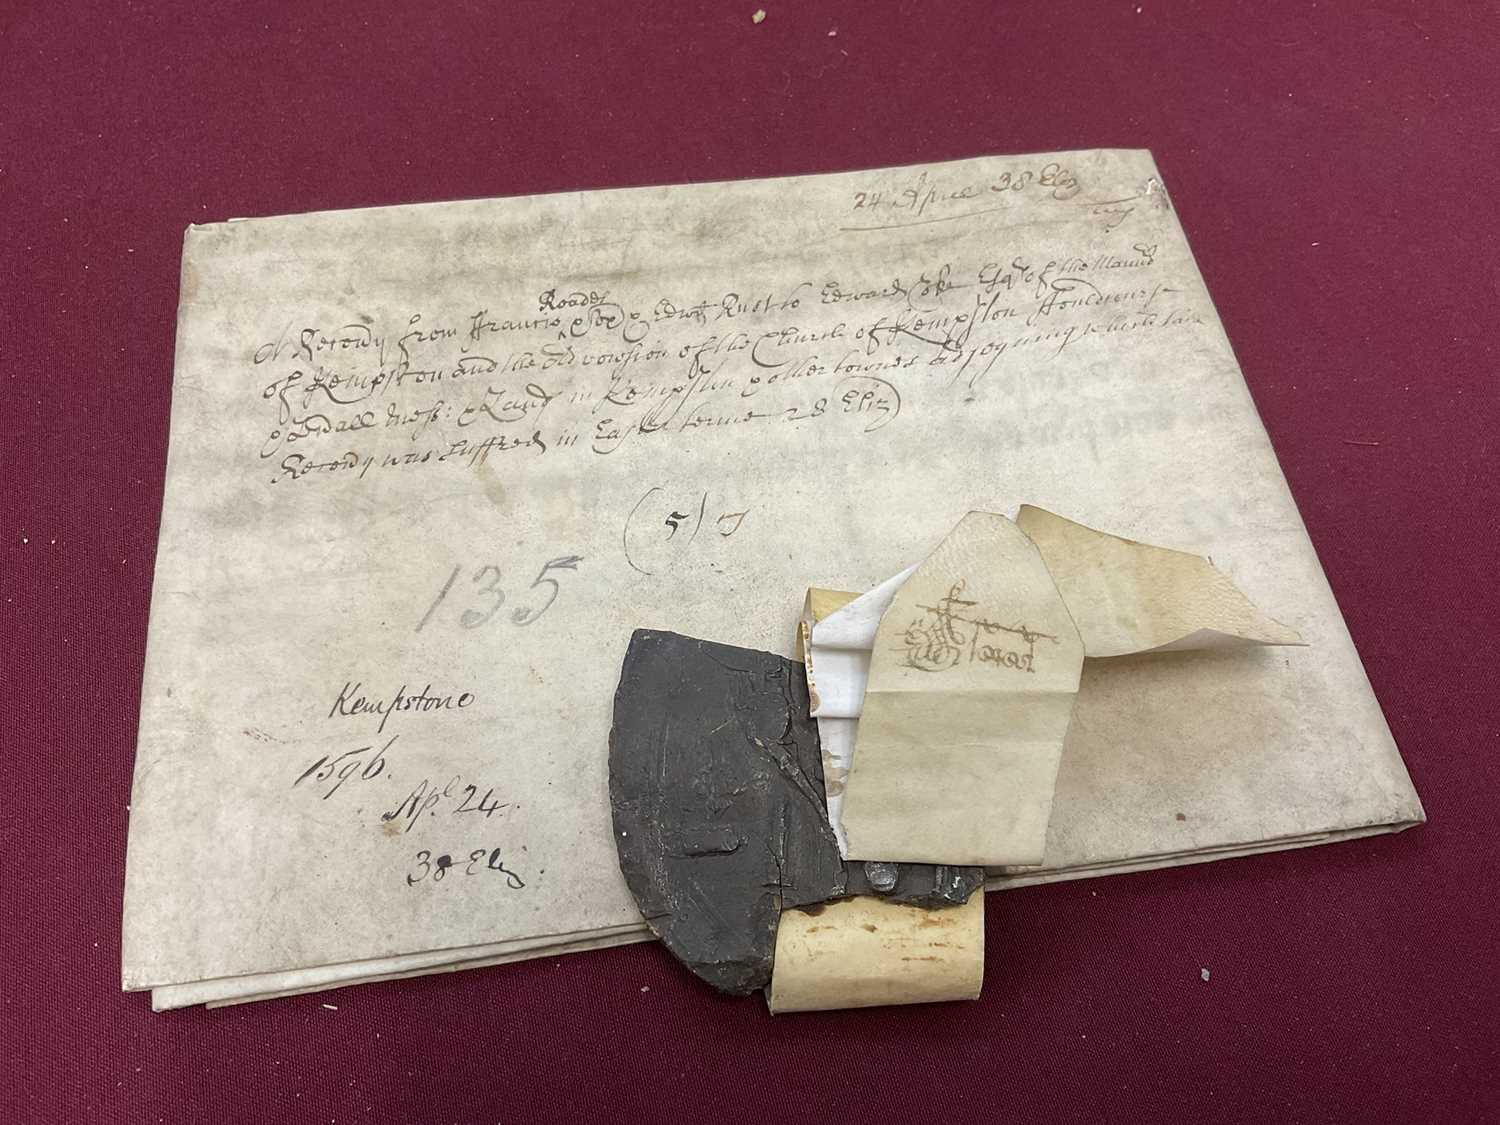 24 Aprie 38 Eliz
Roades
A Recovy from Francis & Edw Rust to Edward Coke Esqr of the Mannor
of Kempston and the Advowsion of the Church of Kempston
& mess: & Lands in Kempston & other townes adjoyning which said
Recovy was suffred in Easter terme 38 Eliz
(5) 7
135
Kempstone
1596.
Apl. 24.
38 Eliz.